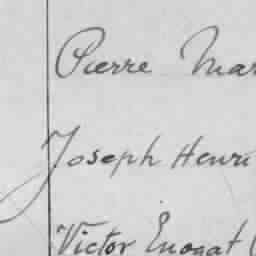 Pierre Mar
Joseph Henri
Victor Enogat